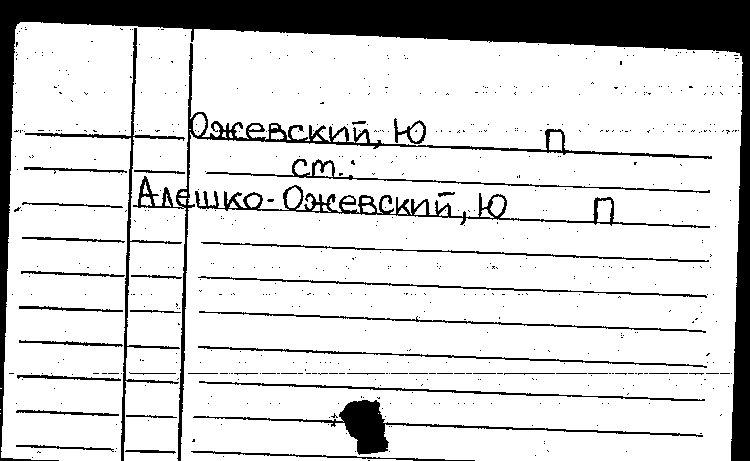 Ожевский, Ю П
ст.:
Алешко-Ожевский, Ю П